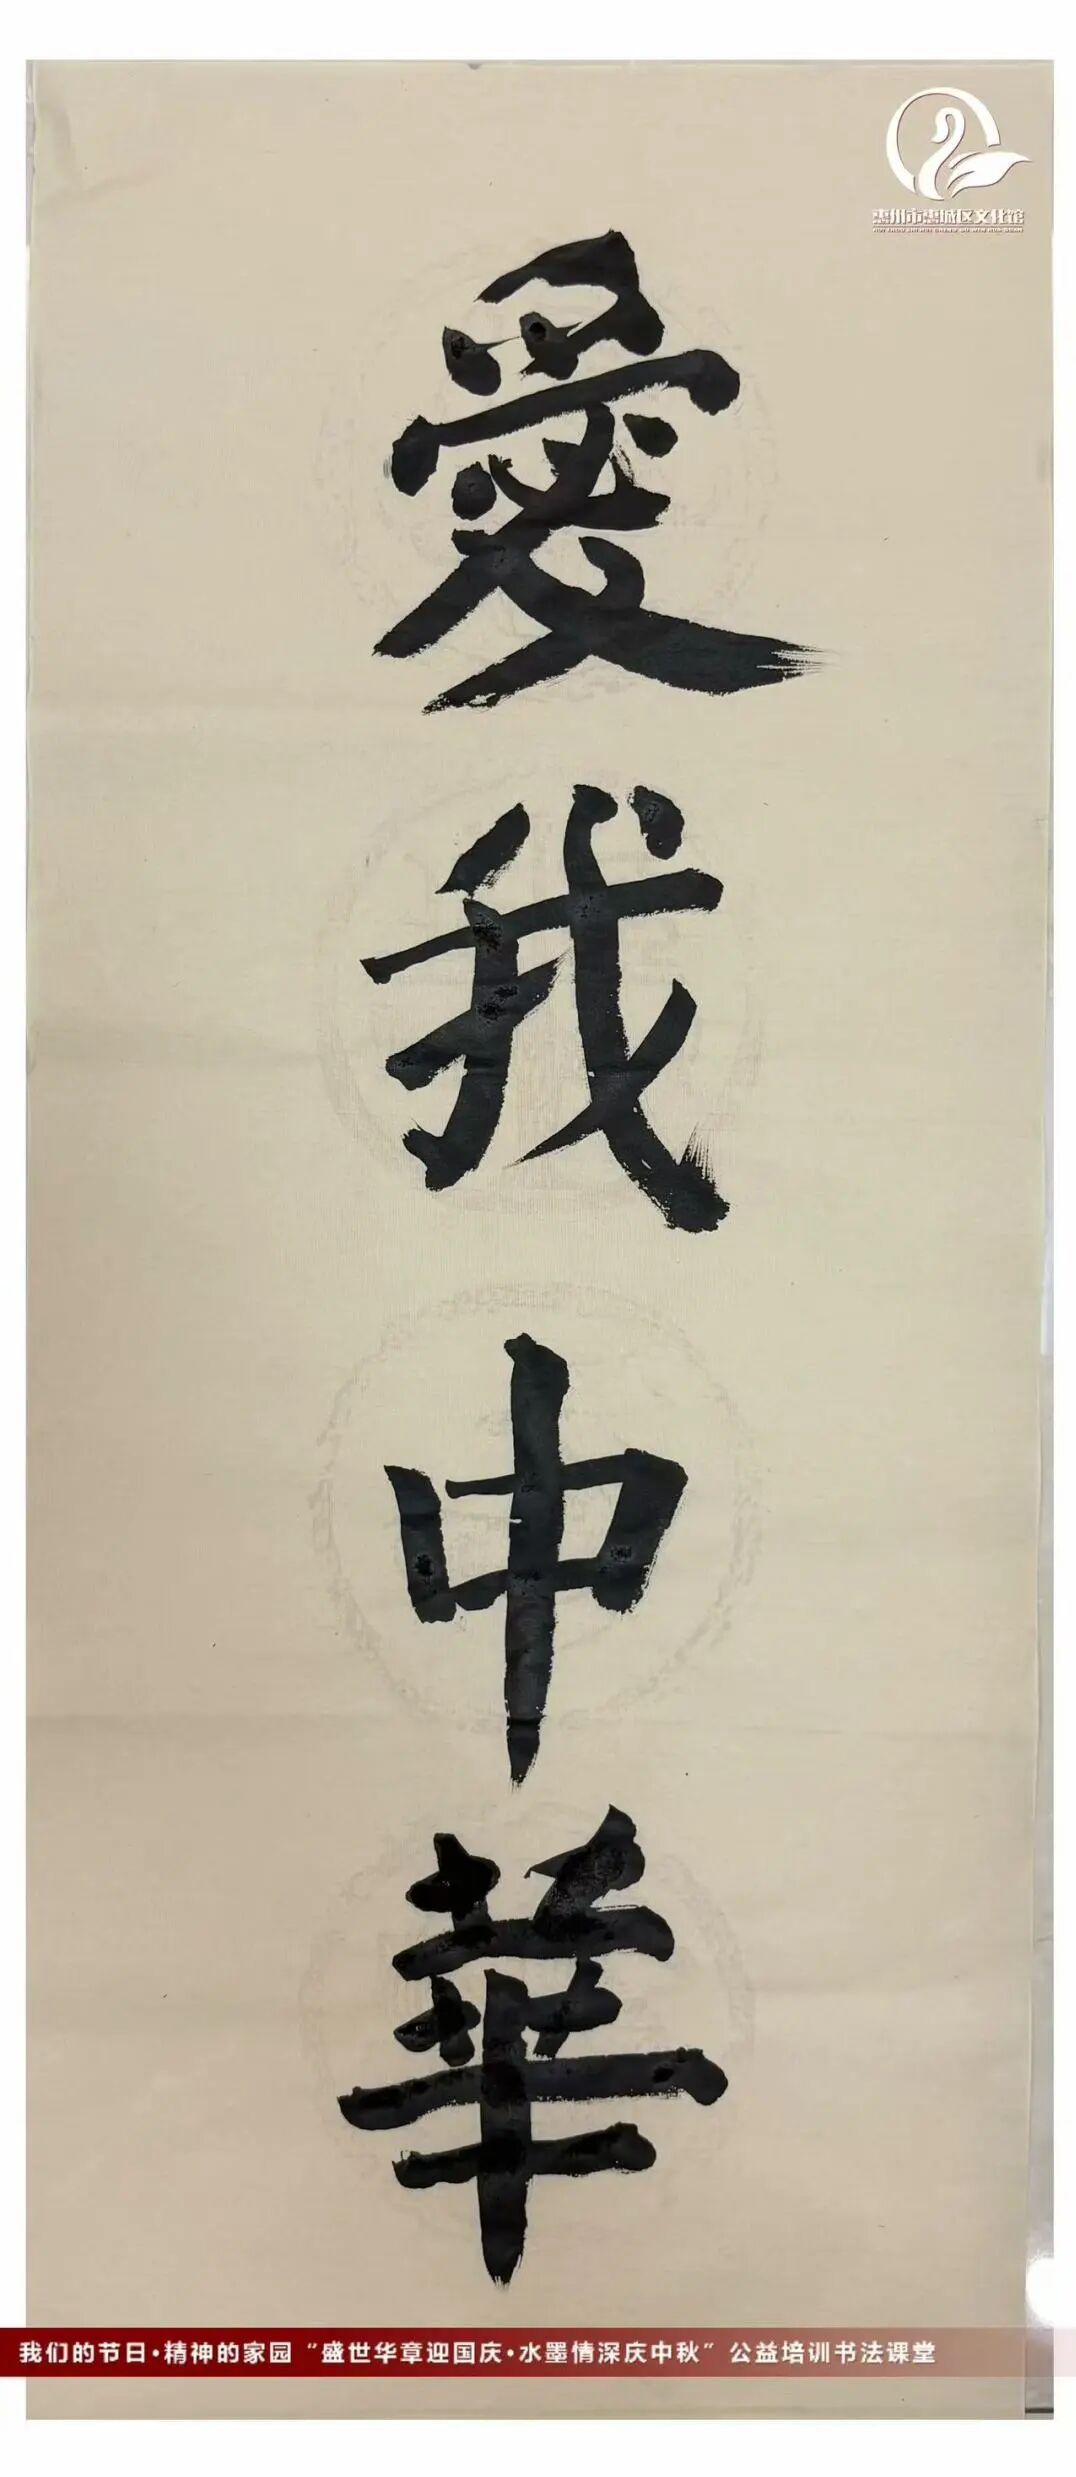 惠州市惠城区文化馆
HUI ZHOU SHI HUI CHENG QU WEN HUA GUAN
愛我中華
我们的节日·精神的家园“盛世华章迎国庆·水墨情深庆中秋”公益培训书法课堂